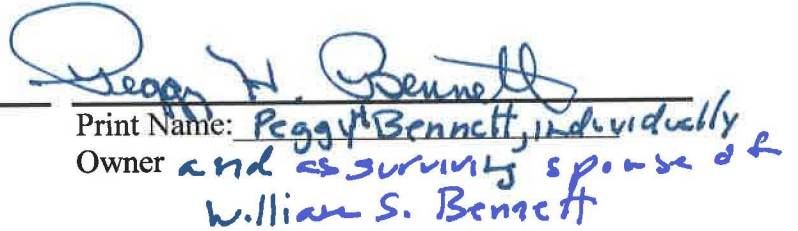 Peggy H. Bennett
Print Name: Peggy H Bennett, individually
Owner and as surviving spouse of
William S. Bennett